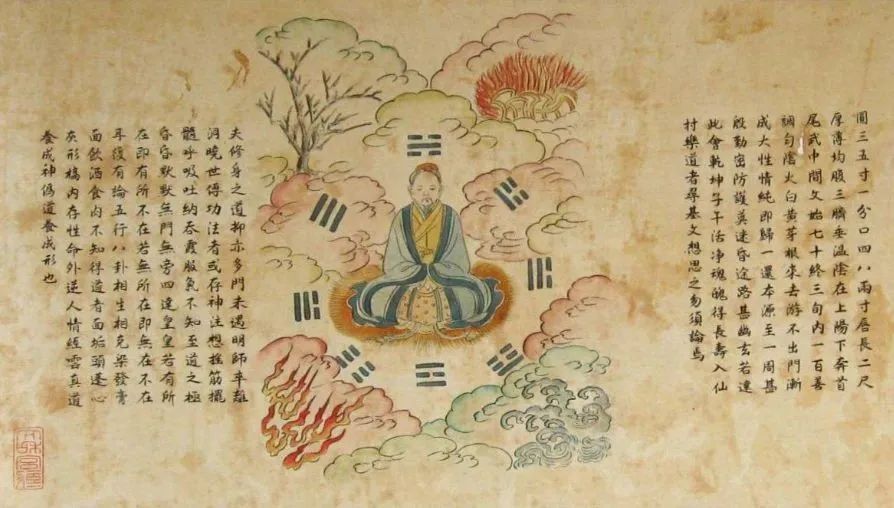 圓三五寸一分口四八兩寸唇長二尺
厚薄均腹三臍垂温陰在上陽下奔首
尾武中間文始七十終三旬内一百善
調匀陰火白黄芽根來去游不出門漸
成大性情純即歸一還本源至一周甚
殷勤密防護莫迷昏途路甚幽玄若達
此會乾坤子干活净魂魄得長壽入仙
村樂道者尋基文想思之勿須論焉
夫修身之道抑亦多門未遇明師卒難
洞曉世傳功法者或存神注想捻筋擺
髓呼吸吐納吞霞服氣不知至道之極
昏昏默默無門無旁四達皇皇若有所
在即有所不在若無所在即無在不在
耳後有論五行八卦相生相克染發膏
面飲酒食肉不知得道者面垢頭蓬心
灰形槁内存性命外逆人情經雲真道
養成神偽道養成形也